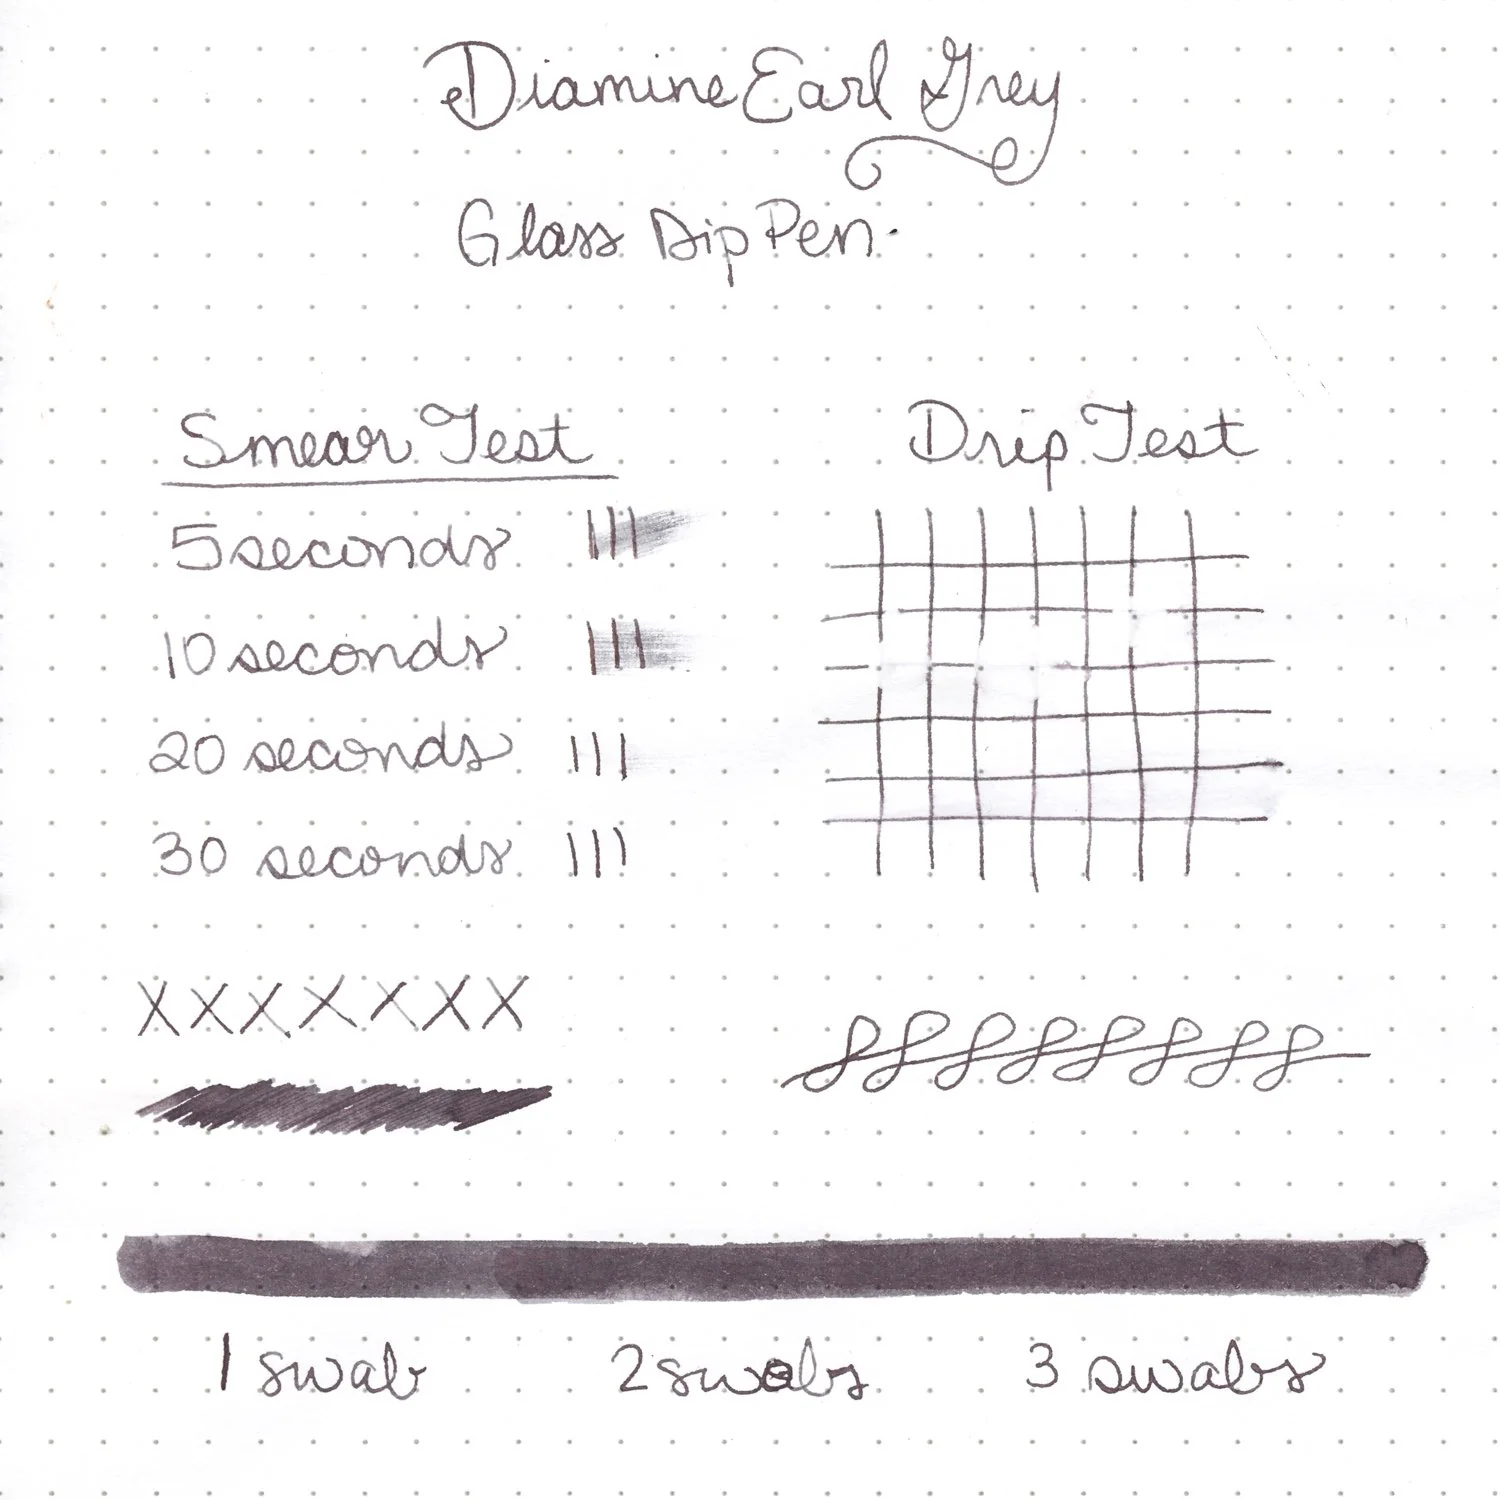 Diamine Earl Grey
Glass Dip Pen.
Smear Test
5 seconds
10 seconds
20 seconds
30 seconds
Drip Test
XXXXXXX
1 swab
2 swabs
3 swabs